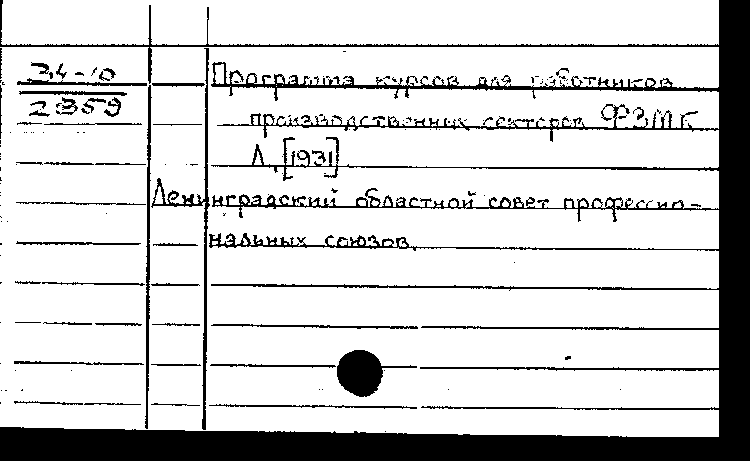 34-10
2359
Программа курсов для работников
производственных секторов ФЗМК
Л. [1931]
Ленинградский областной совет профессио-
нальных союзов.